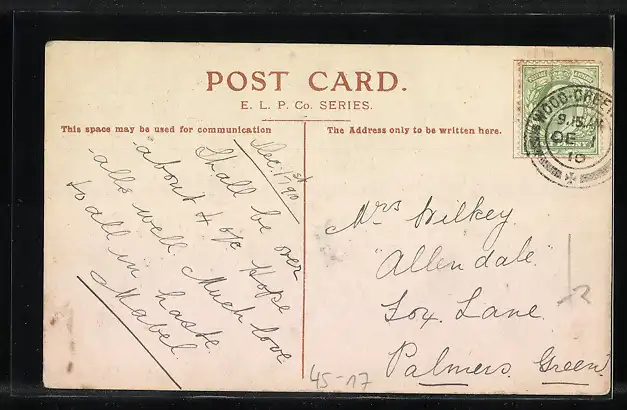 POST CARD.
E. L. P. Co. SERIES.
This space may be used for communication
The Address only to be written here.
WOOD-GREEN
9.15 AM
DE 1
10
Dec. 1st
Shall be over
about 4 o/c Hope
alls well Much love
to all in haste
Mabel.
Mrs Wilkey
"Allendale"
Fox. Lane.
Palmers Green.
45-17